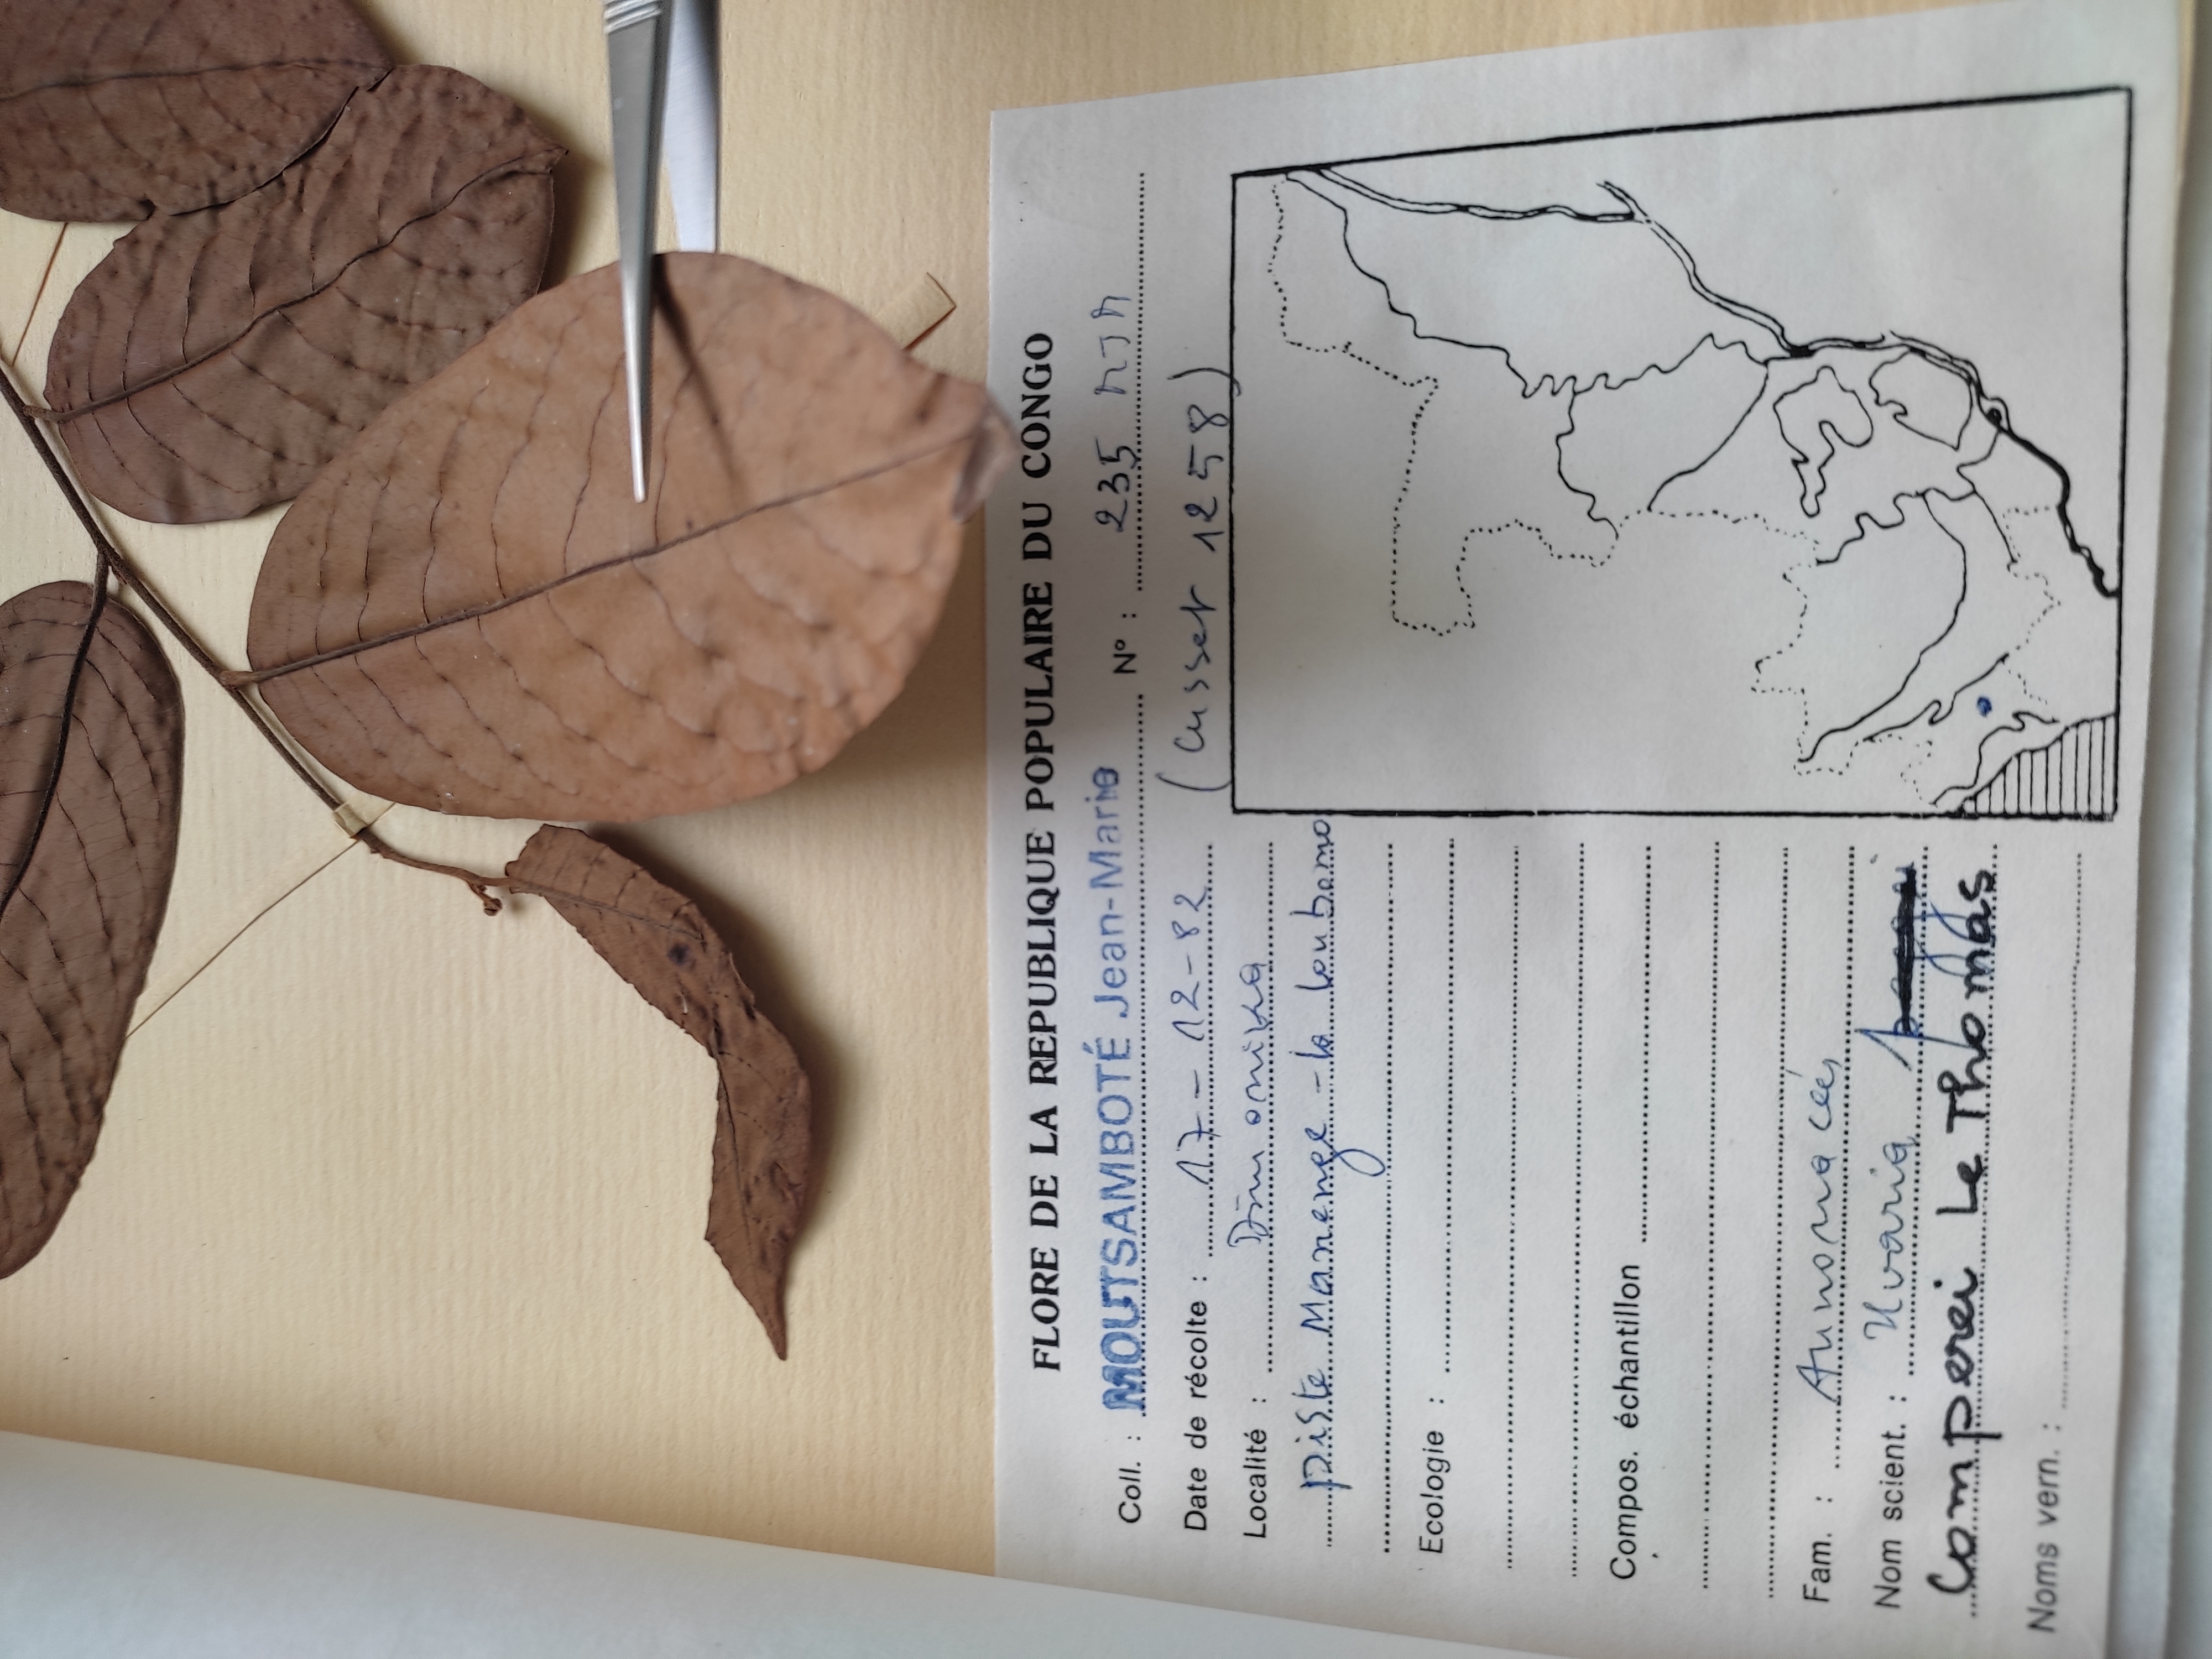 FLORE DE LA REPUBLIQUE POPULAIRE DU CONGO
Coll. : MOUTSAMBOTÉ Jean-Marie N° : 235
Date de récolte : 17-12-82 (Cusset 1258)
Localité : Dimonika
piste Manenge - la loubomo
Ecologie :
Compos. échantillon
Fam. : Annonacées
Nom scient. : Uvaria
Comperei Le Thomas
Noms vern. :